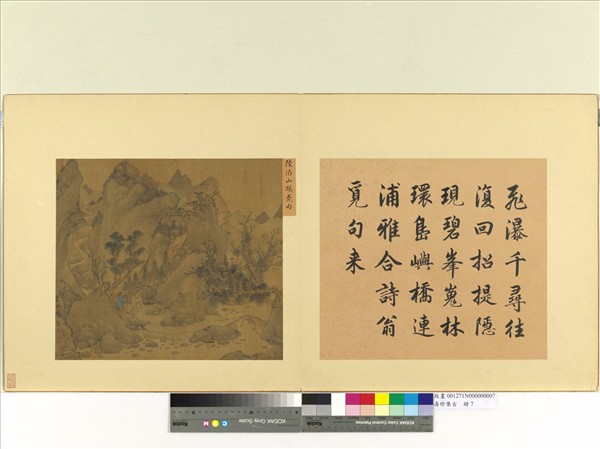 飛瀑千尋往
復回招提隱
現碧峯嵬林
環島嶼橋連
浦雅合詩翁
覓句來
陸治山橋覓句
KODAK Gray Scale
C Y M
KODAK Color Control Patches
故畫 001271N000000007
壽珍集古 冊 7